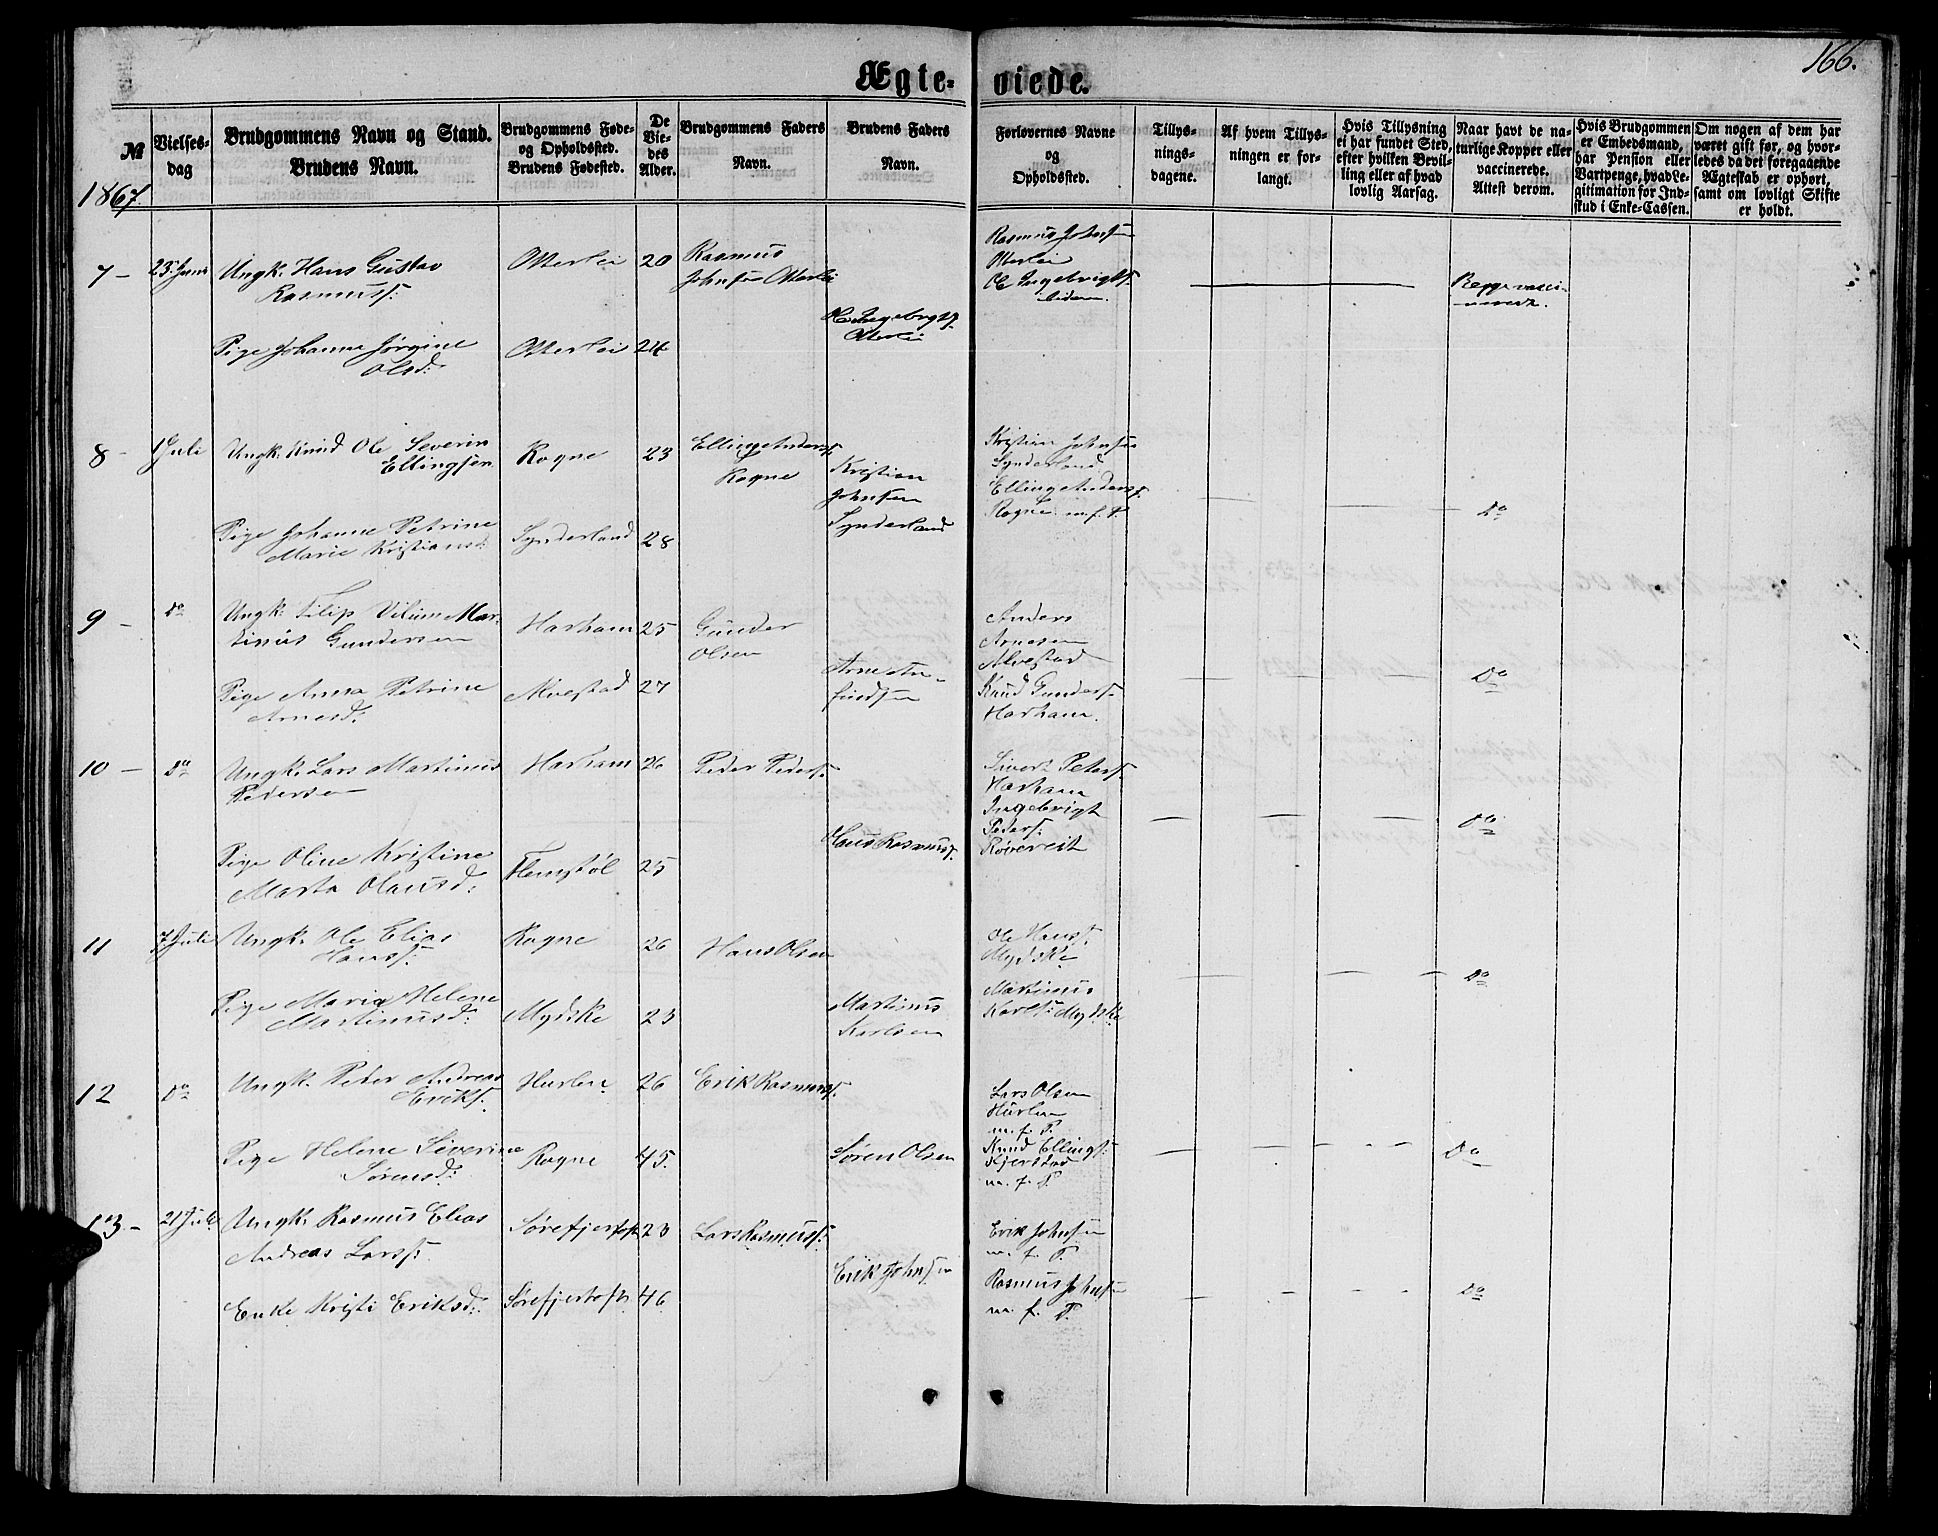 166.
Ægte-viede.
№
Vielses-dag
Brudgommens Navn og Stand.
Brudens Navn.
Brudgommens Føde- og Opholdssted.
Brudens Fødested.
De Viedes Alder.
Brudgommens Faders Navn.
Brudens Faders Navn.
Forlovernes Navne og Opholdssted.
Tillysningsdagene.
Af hvem Tillysningen er forlangt.
Hvis Tillysning ei har fundet Sted, efter hvilken Bevilling eller af hvad lovlig Aarsag.
Naar havt de naturlige Kopper eller vaccinerede. Attest derom.
Hvis Brudgommen er Embedsmand, har Pension eller Vartpenge, hvad Legitimation for Indskud i Enke-Cassen.
Om nogen af dem har været gift før, og hvorledes da det foregaaende Ægteskab er ophørt, samt om lovligt Skifte er holdt.
1867.
7 - 23 Juni Ungk. Hans Gustav Otterlei 20 Rasmus
Rasmuss: Johnsen Otterlei
Rasmus Johnsen
Otterlei
Ole Ingebrigts.
Begge vacci-
nerede.
Ole Ingebrigts.
Otterlei
Pige Johanne Jørgine Otterlei 24
Olsd:
8 - 1 Juli Ungk. Knud Ole Severin Rogne 23 Elling Anders.
Ellingsen Rogne
Kristian
Johnsen
Synderland
Kristian Johnsen
Synderland
Elling Anders.
Rogne m. f. P. Do
Pige Johanne Petrine Synderland 28
Marie Kristiansd:
9 - Do Ungk. Filip Vilium Mar- Harham 25 Gunder
tinus Gundersen Olsen
Arne An-
findsen
Anders
Arnesen
Alvestad
Knud Gunders.
Harham. Do
Pige Anna Petrine Alvestad 27
Arnesd:
10 - Do Ungk. Lars Martinus Harham 26 Peder Peders.
Pedersen
Sivert Peters.
Harham
Ingebrigt
Peders:
Røvereit Do
Hans Rasmuss.
Pige Oline Kristine Flemstøl 25
Marta Hansd:
11 7 Juli Ungk. Ole Elias Rogne 26 Hans Olsen
Hanss:
Ole Hanss.
Mydske
Martinus
Karls: Mydske Do
Pige Maria Helene Mydske 23 Martinus
Martinusd: Karlsen
12 Do Ungk. Peder Andreas Hurlen 26 Erik Rasmuss.
Eriks.
Lars Olsen
Hurlen
m. f. P.
Knud Ellings:
Kjerstad
m. f. P. Do
Pige Helene Severine Rogne 45. Søren Olsen
Sørensd:
13 - 21 Juli Ungk. Rasmus Elias Sørefjertoft 23 Lars Rasmuss.
Andreas Larss:
Erik Johnsen
Erik Johnsen
m. f. P.
Rasmus Johnsen
m. f. P. Do
Enke Kristi Eriksd: Sørefjertoft 46